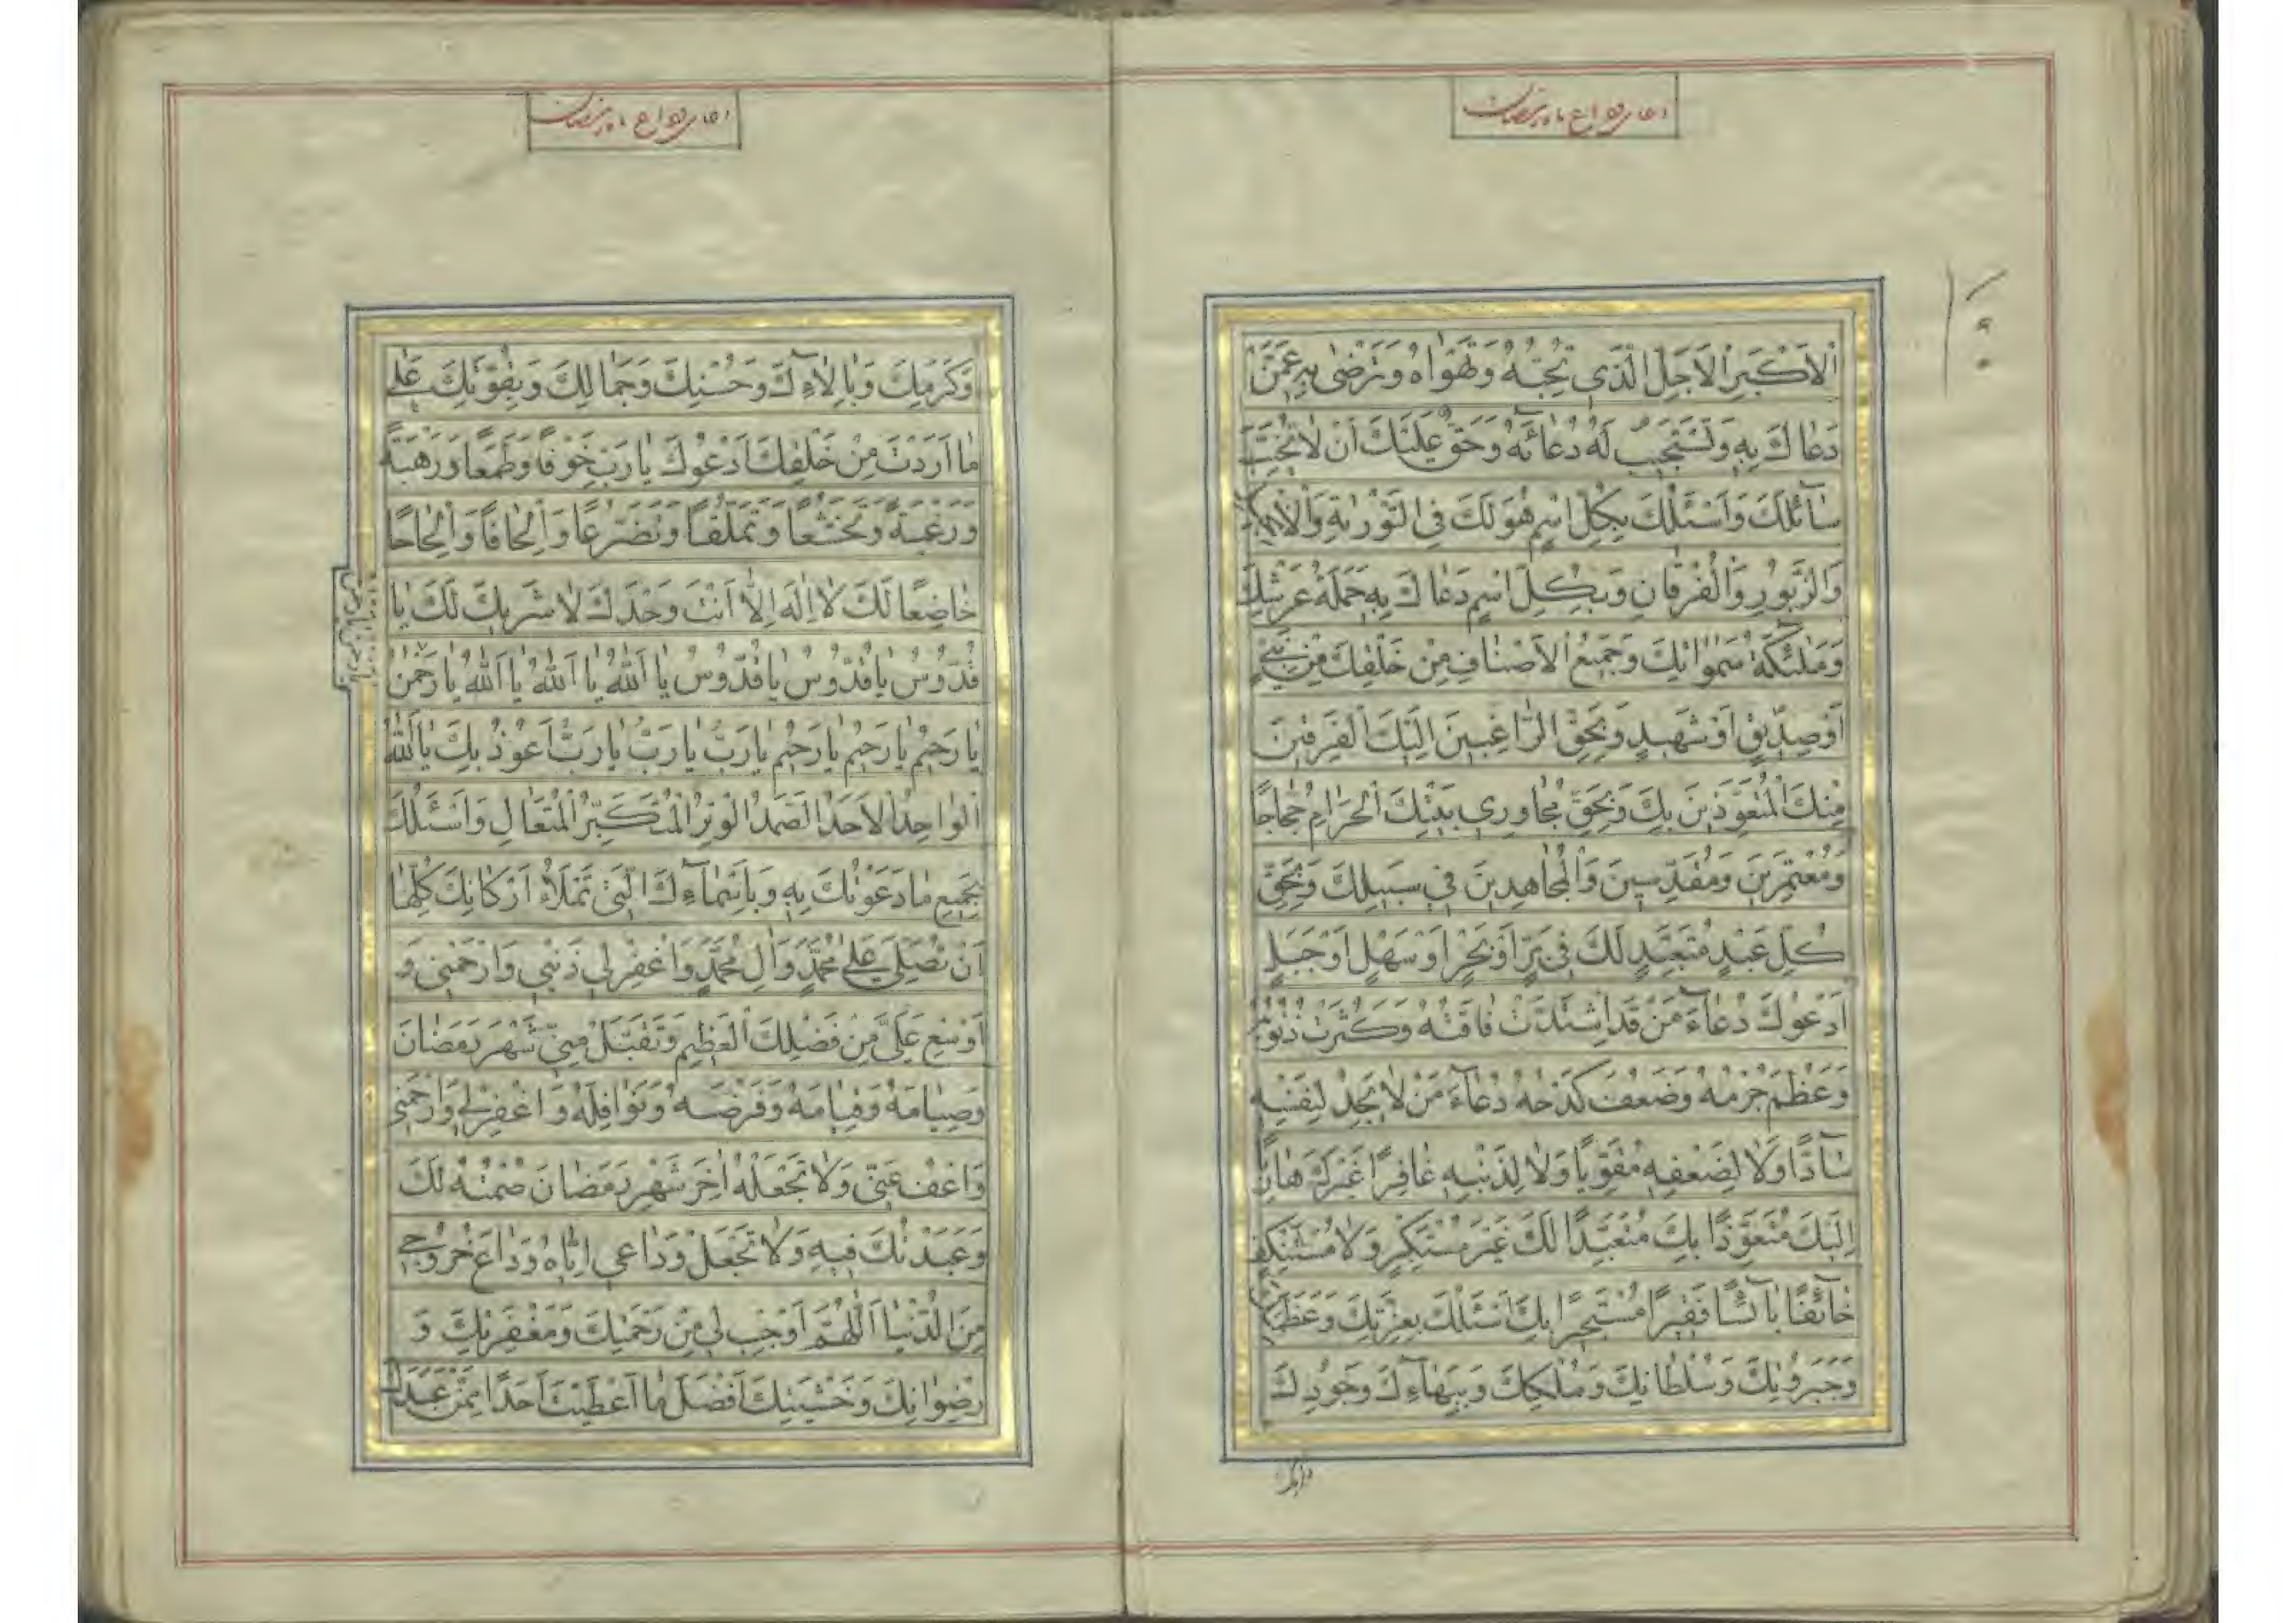 دعای وداع ماه رمضان
اَلْاَكْبَرِ الْاَجَلِّ الَّذی تُحِبُّهُ وَتَهْواهُ وَتَرْضٰی بِهِ عَمَّنْ
دَعاكَ بِهِ وَتَسْتَجیبُ لَهُ دُعآئَهُ وَحَقٌّ عَلَیْكَ اَنْ لاتُخَیِّبَ
سآئِلَكَ وَاَسْئَلُكَ بِكُلِّ اسْمٍ هُوَ لَكَ فِی التَّوْرٰیةِ وَالْاِنْجیلِ
وَالزَّبُورِ وَالْفُرْقانِ وَبِكُلِّ اسْمٍ دَعاكَ بِهِ حَمَلَةُ عَرْشِكَ
وَمَلٰئِكَةُ سَمٰوٰاتِكَ وَجَمیعُ الْاَصْنافِ مِنْ خَلْقِكَ مِنْ نَبِیٍّ
اَوْ صِدّیقٍ اَوْ شَهیدٍ وَبِحَقِّ الرّاغِبینَ اِلَیْكَ الْفَرِقینَ
مِنْكَ الْمُتَعَوِّذینَ بِكَ وَبِحَقِّ مُجاوِری بَیْتِكَ الْحَرامِ حُجّاجًا
وَمُعْتَمِرینَ وَمُقَدِّسینَ وَالْمُجاهِدینَ فی سَبیلِكَ وَبِحَقِّ
كُلِّ عَبْدٍ مُتَعَبِّدٍ لَكَ فی بَرٍّ اَوْ بَحْرٍ اَوْ سَهْلٍ اَوْ جَبَلٍ
اَدْعُوكَ دُعآءَ مَنْ قَدِ اشْتَدَّتْ فاقَتُهُ وَكَثُرَتْ ذُنُوبُهُ
وَعَظُمَ جُرْمُهُ وَضَعُفَ كَدْحُهُ دُعآءَ مَنْ لا یَجِدُ لِنَفْسِهِ
سآدًّا وَلا لِضَعْفِهِ مُقَوِّیًا وَلا لِذَنْبِهِ غافِرًا غَیْرَكَ هارِبًا
اِلَیْكَ مُتَعَوِّذًا بِكَ مُتَعَبِّدًا لَكَ غَیْرَ مُسْتَكْبِرٍ وَلا مُسْتَنْكِفٍ
خآئِفًا بآئِسًا فَقیرًا مُسْتَجیرًا بِكَ اَسْئَلُكَ بِعِزَّتِكَ وَعَظَمَتِكَ
وَجَبَرُوتِكَ وَسُلْطانِكَ وَمُلْكِكَ وَبِبَهآءِكَ وَجُودِكَ
دعای وداع ماه رمضان
وَكَرَمِكَ وَبِالٰاءِكَ وَحُسْنِكَ وَجَمالِكَ وَبِقُوَّتِكَ عَلٰی
ما اَرَدْتَ مِنْ خَلْقِكَ اَدْعُوكَ یا رَبِّ خَوْفًا وَطَمَعًا وَرَهْبَةً
وَرَغْبَةً وَتَخَشُّعًا وَتَمَلُّقًا وَتَضَرُّعًا وَاِلْحافًا وَاِلْحاحًا
خاضِعًا لَكَ لا اِلٰهَ اِلّا اَنْتَ وَحْدَكَ لا شَریكَ لَكَ یا
قُدُّوسُ یا قُدُّوسُ یا قُدُّوسُ یا اَللهُ یا اَللهُ یا اَللهُ یا رَحْمٰنُ
یا رَحیمُ یا رَحیمُ یا رَحیمُ یا رَبُّ یا رَبُّ یا رَبُّ اَعُوذُ بِكَ یا اَللهُ
الْواحِدُ الْاَحَدُ الصَّمَدُ الْوِتْرُ الْمُتَكَبِّرُ الْمُتَعالِ وَاَسْئَلُكَ
بِجَمیعِ ما دَعَوْتُكَ بِهِ وَبِاَسْمآءِكَ الَّتی تَمْلَاءُ اَرْكانَكَ كُلَّها
اَنْ تُصَلِّیَ عَلٰی مُحَمَّدٍ وَاٰلِ مُحَمَّدٍ وَاغْفِرْ لی ذَنْبی وَارْحَمْنی وَ
اَوْسِعْ عَلَیَّ مِنْ فَضْلِكَ الْعَظیمِ وَتَقَبَّلْ مِنّی شَهْرَ رَمَضانَ
وَصِیامَهُ وَقِیامَهُ وَفَرْضَهُ وَنَوافِلَهُ وَاغْفِرْ لی وَارْحَمْنی
وَاعْفُ عَنّی وَلا تَجْعَلْهُ اٰخِرَ شَهْرِ رَمَضانَ صُمْتُهُ لَكَ
وَعَبَدْتُكَ فیهِ وَلا تَجْعَلْ وَداعی اِیّاهُ وَداعَ خُرُوجی
مِنَ الدُّنْیا اَللّٰهُمَّ اَوْجِبْ لی مِنْ رَحْمَتِكَ وَمَغْفِرَتِكَ وَ
رِضْوانِكَ وَخَشْیَتِكَ اَفْضَلَ ما اَعْطَیْتَ اَحَدًا مِمَّنْ عَبَدَكَ